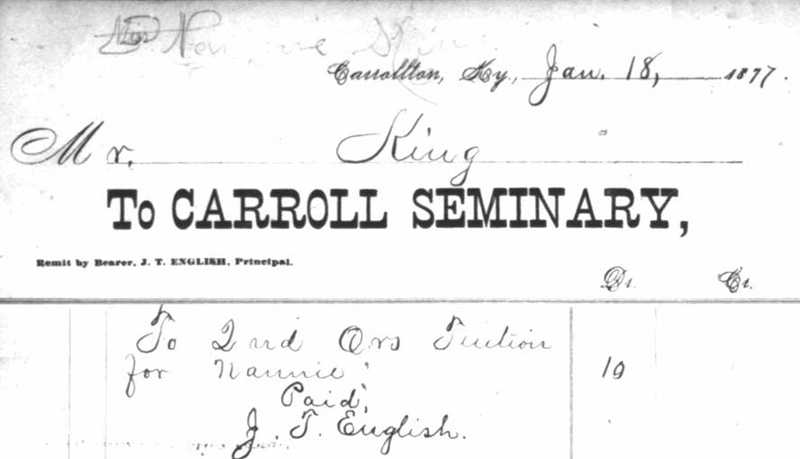 Carrollton, Ky., Jan. 18, 1877.
Mr. King
To CARROLL SEMINARY,
Remit by Bearer, J. T. ENGLISH, Principal.
Dr. Cr.
To 2nd Qrs Tuition
for Nannie 10
Paid,
J. T. English.